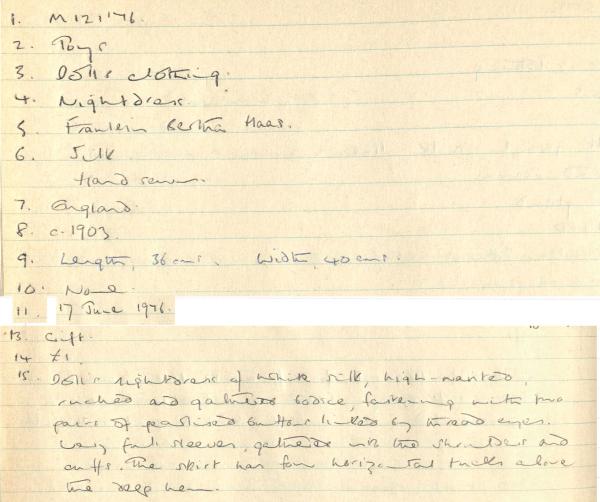 1. M121'76.
2. Toys
3. Doll's clothing.
4. Nightdress
5. Fraulein Bertha Haas.
6. Silk
Hand sewn.
7. England.
8. c.1903.
9. Length, 36 cms. Width, 40 cms.
10. None.
11. 17 June 1976.
13. Gift.
14 £1.
15. Doll's nightdress of white silk, high-waisted,
ruched and gathered bodice, fastening with two
pairs of pearlised buttons linked by thread eyes.
Very full sleeves, gathered into the shoulders and
cuffs. The skirt has four horizontal tucks above
the deep hem.